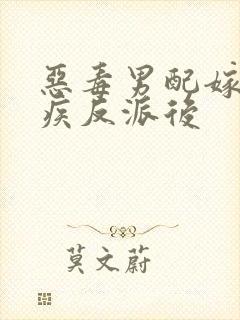 惡毒男配嫁
疾反派後
莫文蔚